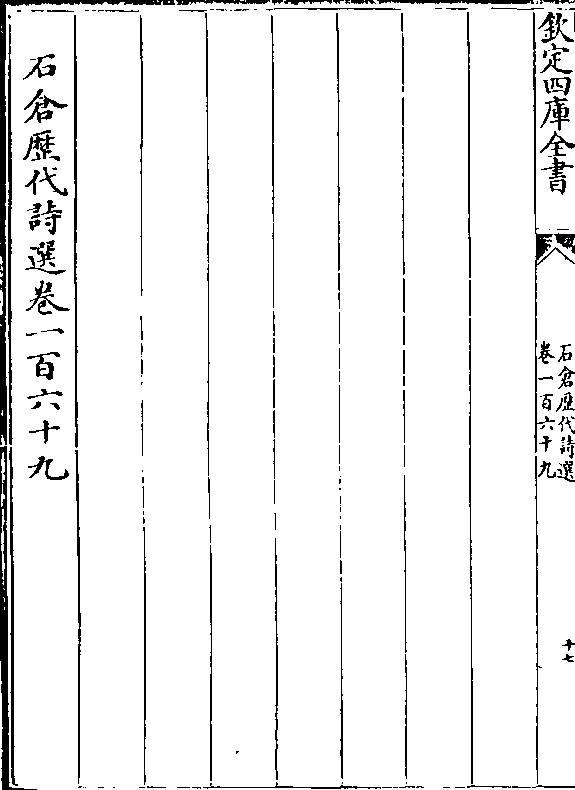 欽定四庫全書
石倉歷代詩選
卷一百六十九
十七
石倉歷代詩選卷一百六十九